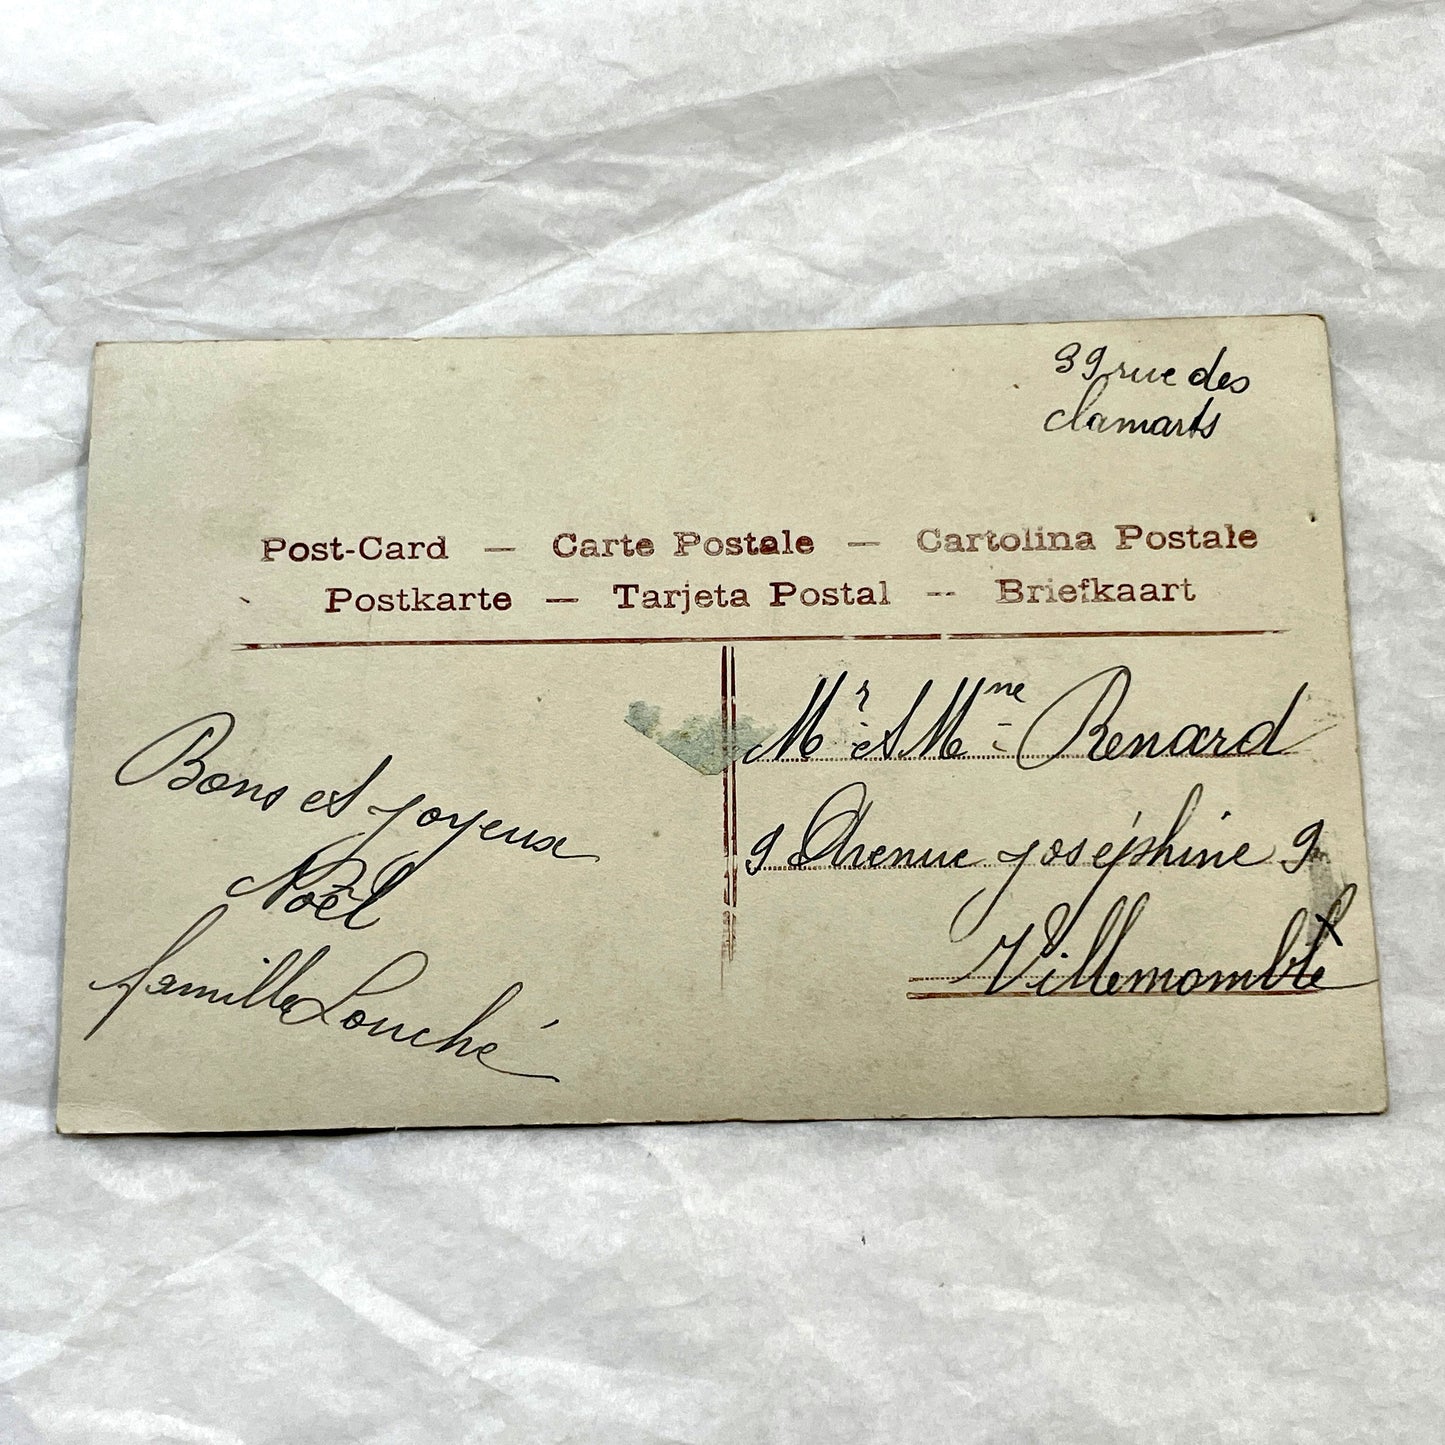 39 rue des
clamarts
Post-Card — Carte Postale — Cartolina Postale
Postkarte — Tarjeta Postal -- Briefkaart
Mr et Mme Renard
9 Avenue joséphine 9
Villemomble
Bons et joyeux
Noël
famille Louché